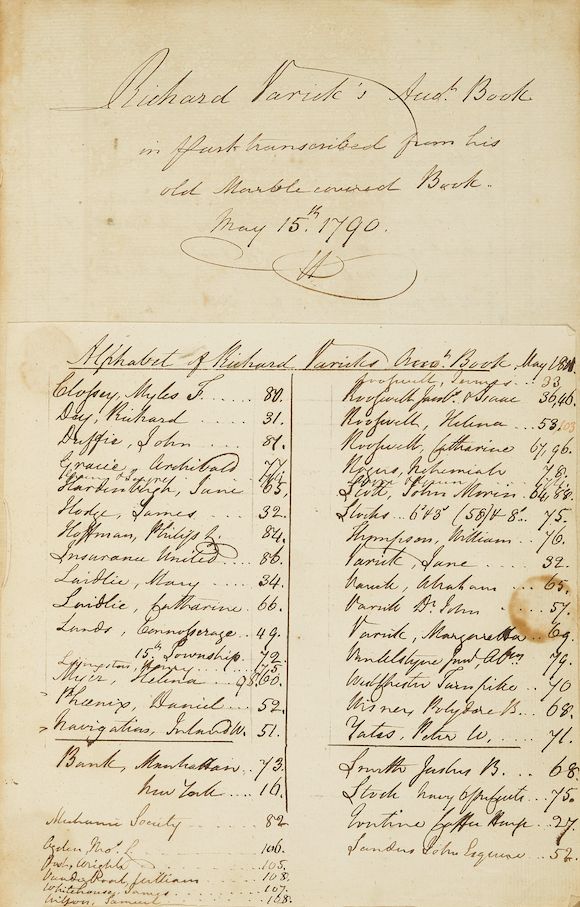 Richard Varick's Acct. Book
in Part transcribed from his
old Marble covered Book.
May 15th. 1790.
Alphabet of Richard Varicks Book, May
Clossey, Myles F. 80.
Day, Richard 31.
Duffie, John 81.
Gracie, Archibald 77.
Hardenbergh, Jane 65.
Hodge, James 32.
Hoffman, Philip L 84.
Insurance United 86.
Laidlie, Mary 34.
Laidlie, Catharine 66.
Lands, Connosserage 49.
15th Township 72
Livingston, Henry 75.
Myer, Helena 98.60.
Phœnix, Daniel 52.
Navigation, Inland W. 51.
Bank, Manhattan 73.
New York 16.
Mechanic Society 82
Ogden Thos. L 106.
Post, Wright 105.
William 108.
Whitehouse, James 107.
Wilson, Samuel 108.
Roosevelt, James 33,
Roosevelt Jacob. & Isaac 36,46.
Roosevelt, Helena 58,103
Roosevelt Catharine 67,96.
Rogers, Nehemiah 78.
Scott, John Morin 64,88.
Stocks 75.
Thompson, William 76.
Varick, Jane 32.
Varick, Abraham 65.
Varick Dr. John 57.
Varick, Margaretta 69.
79.
Westchester Turnpike 70
Wisner, Polydore B. 68.
Yates, Peter W. 71.
Smith Justus B. 68.
Stock 75.
Tontine Coffee House 27.
Sanders John Esquire 52.